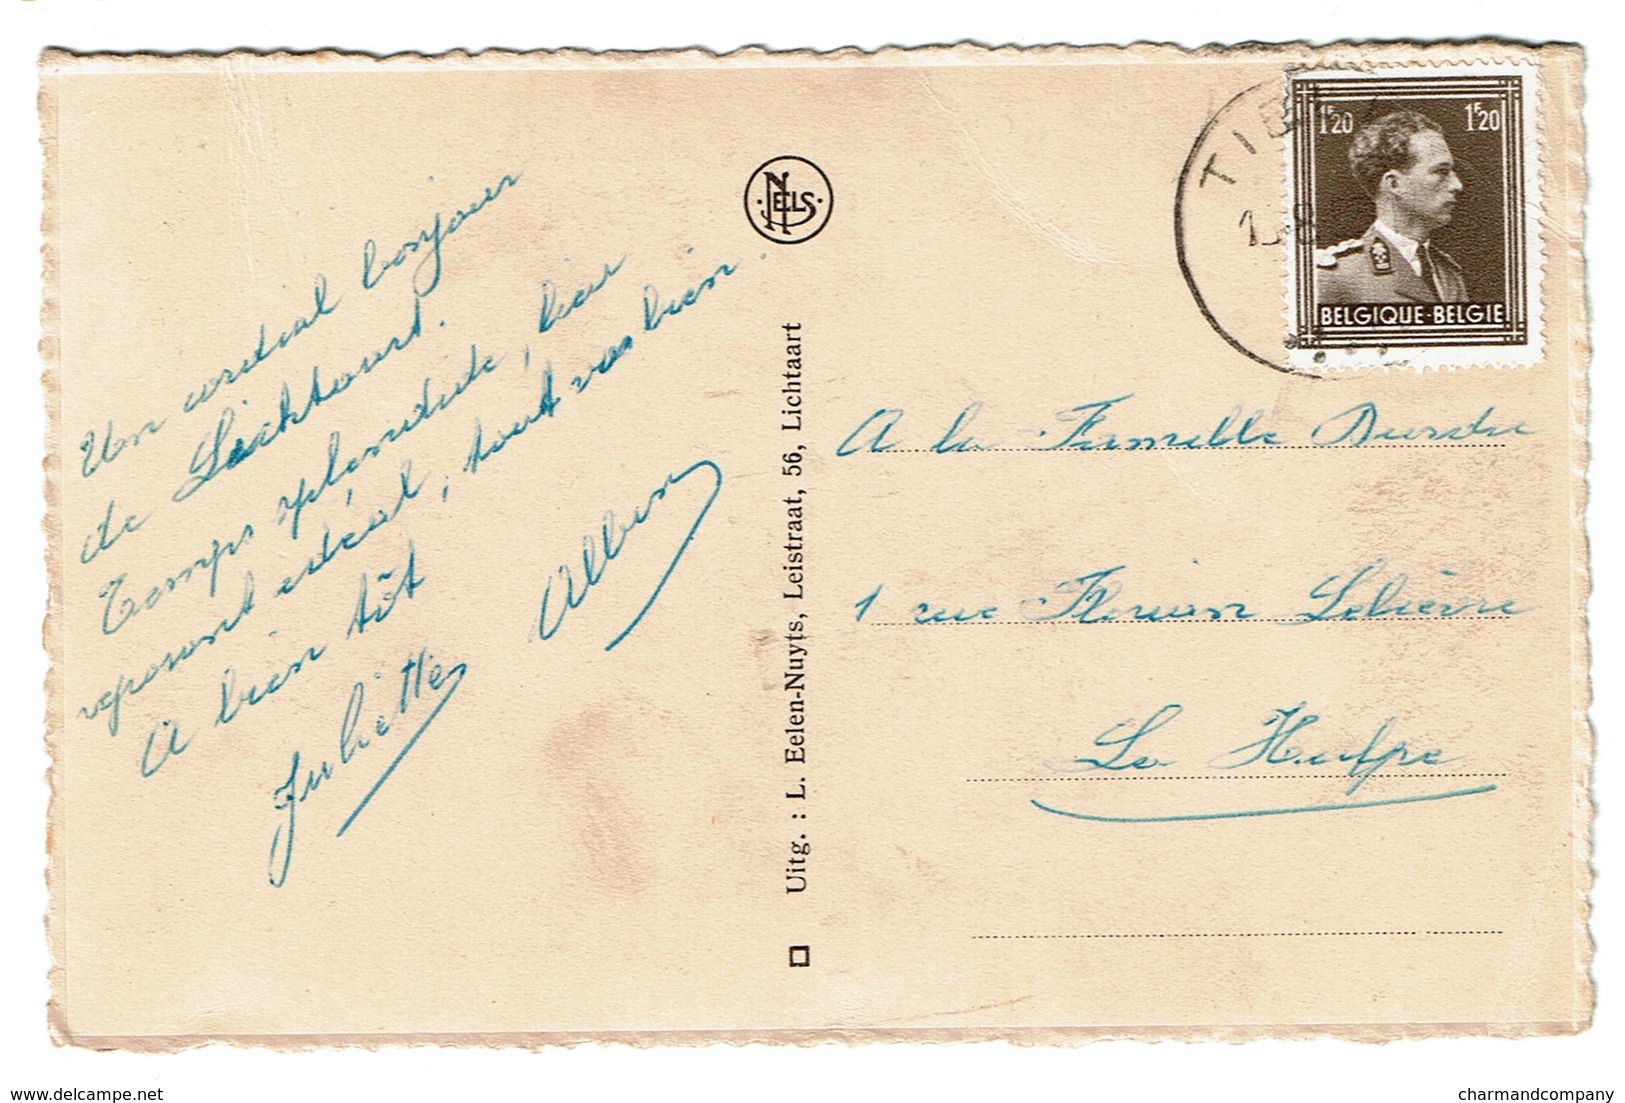 Un cordial bonjour
de Lichtaart.
Temps splendide, lieu
reposant idéal, tout va bien.
A bien tôt
Juliette Albin
NELS
Uitg. : L. Eelen-Nuyts, Leistraat, 56, Lichtaart
TIE
1F20 1F20
BELGIQUE·BELGIE
A la Famille
1 rue Florian Lelièvre
La Hulpe
delcampe.net
charmandcompany